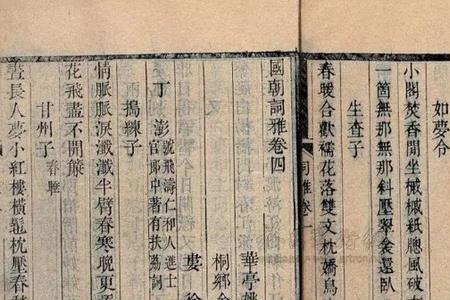 如夢令
小閣焚香閒坐槭槭紙牕風破
一箇無那無那斜壓翠衾還臥
生查子
春暖合歡襦花落雙文枕嬌鳥
詞雅卷一
國朝詞雅卷四
華亭姚
桐鄉金
婁
丁澎
號飛濤仁和人進士
官郎中著有扶荔詞
擣練子
情脈脈淚瀸瀸半臂春寒晚更
花飛盡不開簾
甘州子 春睡
晝長人夢小紅樓橫鴛枕壓春